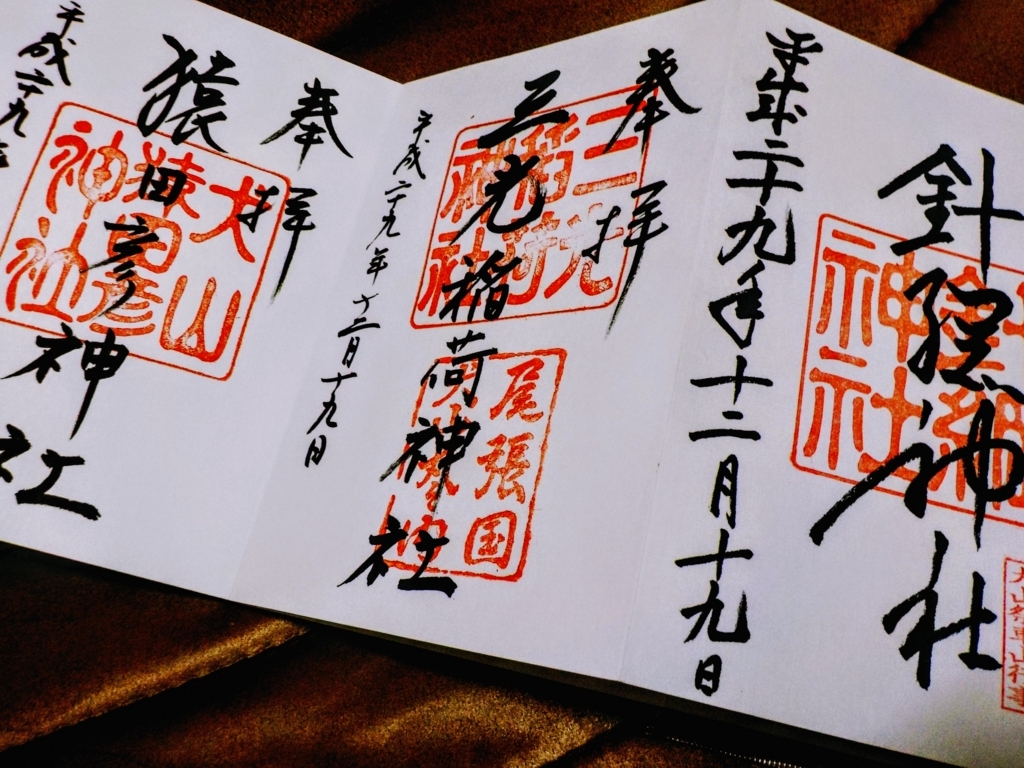 針綱神社
平成二十九年十二月十九日
犬山祭車山行事
奉拝
三光稲荷神社
三光稲荷神社
尾張国
平成二十九年十二月十九日
奉拝
猿田彦神社
犬山猿田彦神社
平成二十九年